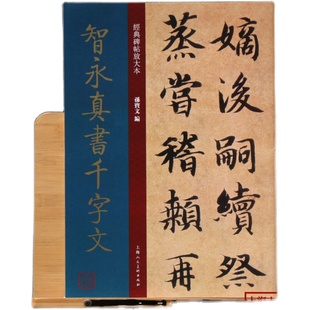 嫡後嗣續祭
蒸嘗稽顙再
經典碑帖放大本
孫寶文 編
智永真書千字文
上海人民美術出版社